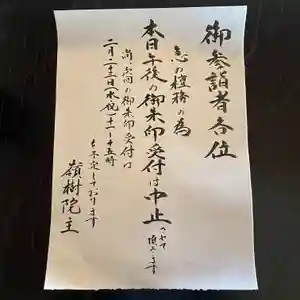 御参詣者各位
急の檀務の為
本日午後の御朱印受付は中止
させて頂きます
尚次回の御朱印受付は
二月二十三日(水祝)十一〜十五時
を予定しております
嶺樹院主